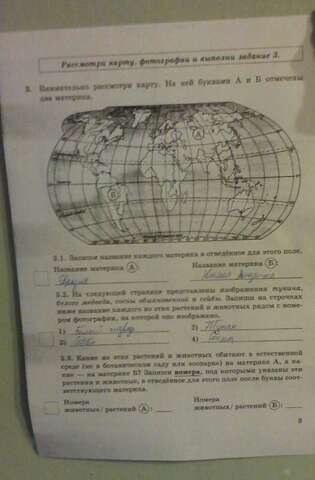 Рассмотри карту, фотографии и выполни задание 3.
3. Внимательно рассмотри карту. На ней буквами А и Б отмечены
два материка.
А
Б
3.1. Запиши название каждого материка в отведённое для этого поле.
Название материка А: Название материка Б:
Евразия Южная Америка
3.2. На следующей странице представлены изображения тукана,
белого медведя, сосны обыкновенной и сейбы. Запиши на строчках
ниже название каждого из этих растений и животных рядом с номе-
ром фотографии, на которой оно изображено.
1) Белый медведь 2) Тукан
3) 4) Сосна
3.3. Какие из этих растений и животных обитают в естественной
среде (не в ботаническом саду или зоопарке) на материке А, а ка-
кие — на материке Б? Запиши номера, под которыми указаны эти
растения и животные, в отведённое для этого поле после буквы соот-
ветствующего материка.
Номера Номера
животных/растений А: животных/растений Б: